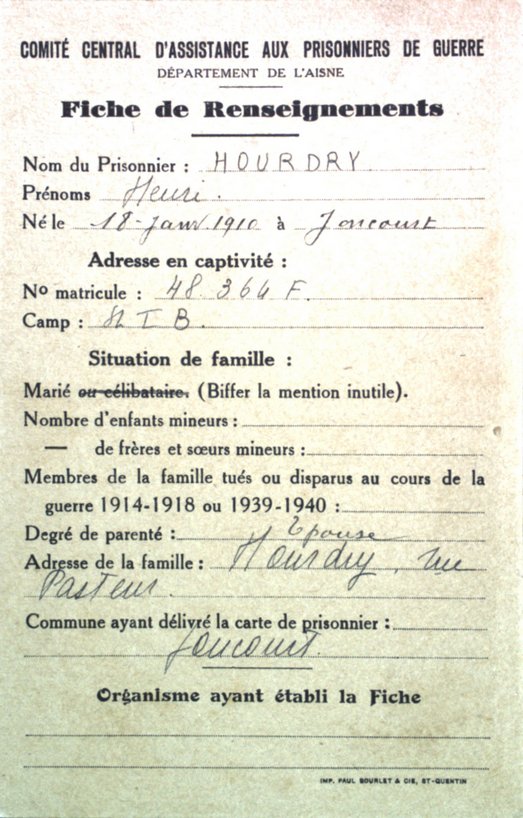 COMITÉ CENTRAL D'ASSISTANCE AUX PRISONNIERS DE GUERRE
DÉPARTEMENT DE L'AISNE
Fiche de Renseignements
Nom du Prisonnier : HOURDRY
Prénoms Henri.
Né le 18-Janv.1910 à Joncourt
Adresse en captivité :
No matricule : 48.364 F.
Camp : St I B.
Situation de famille :
Marié ou célibataire. (Biffer la mention inutile).
Nombre d'enfants mineurs :
— de frères et sœurs mineurs :
Membres de la famille tués ou disparus au cours de la
guerre 1914-1918 ou 1939-1940 :
Degré de parenté : Epouse
Adresse de la famille : Hourdry, rue
Pasteur.
Commune ayant délivré la carte de prisonnier :
Joncourt.
Organisme ayant établi la Fiche
IMP. PAUL BOURLET & CIE, ST-QUENTIN